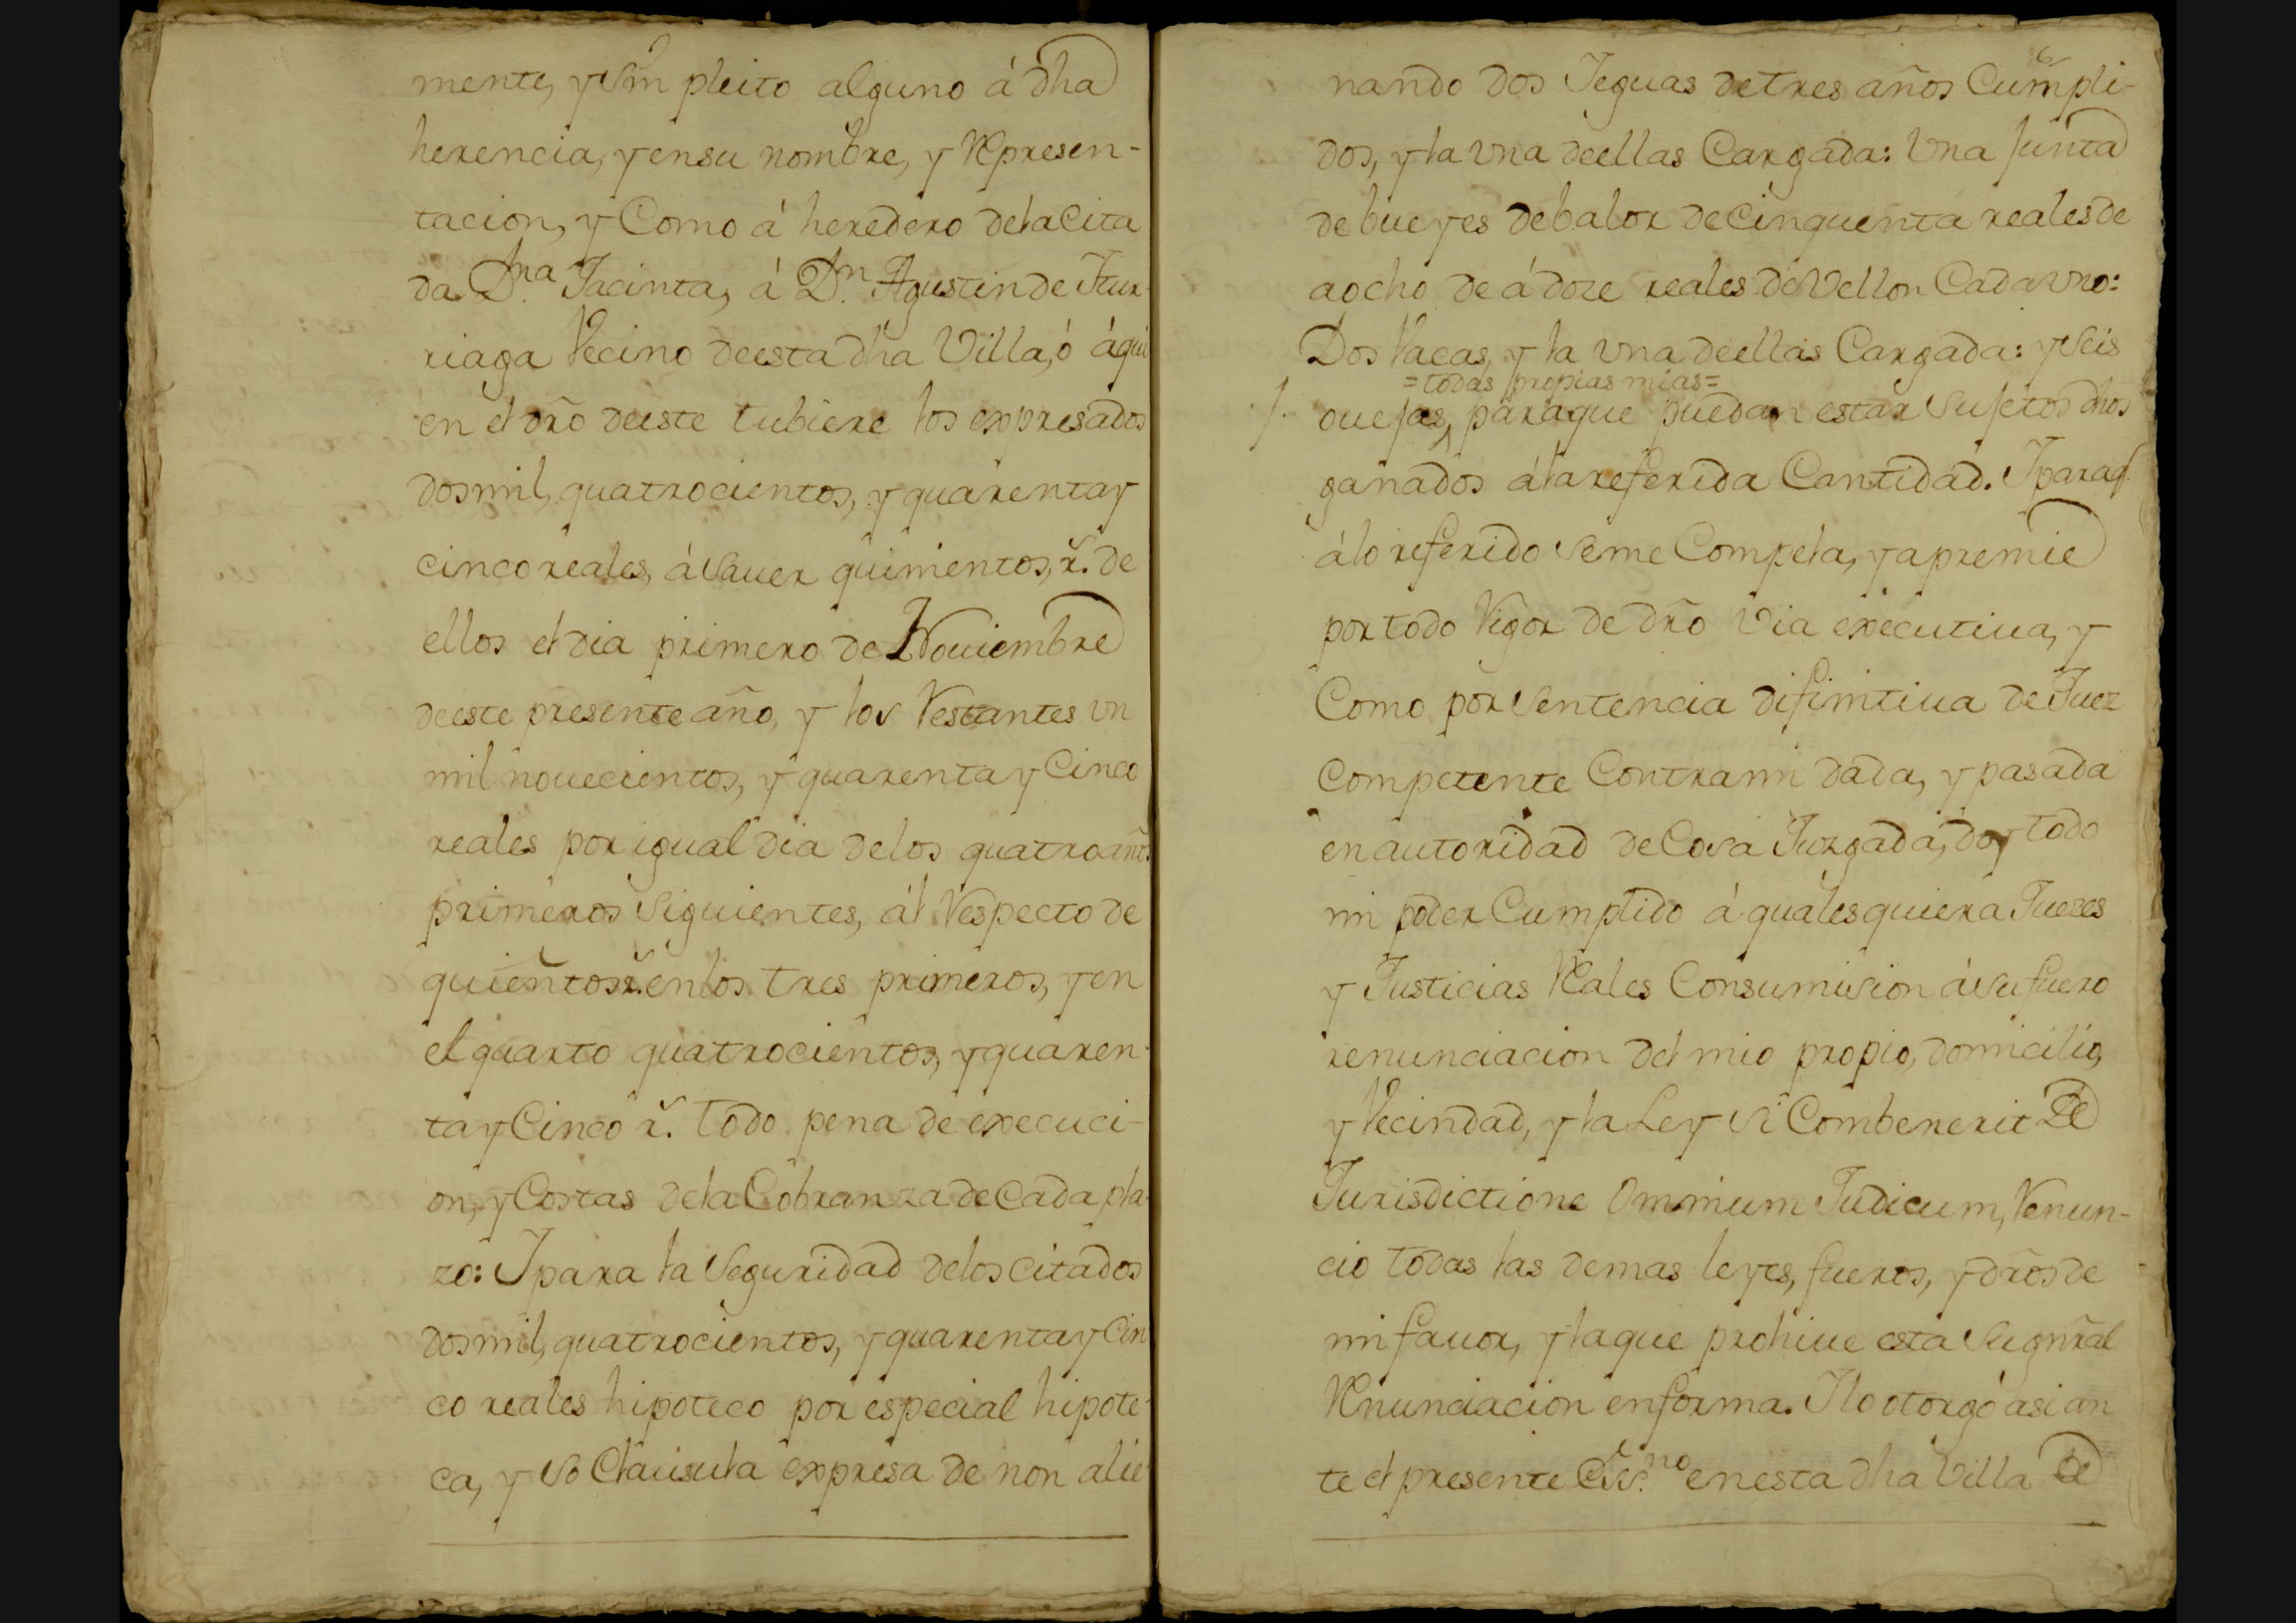 mente, y sin pleito alguno á dha
herencia, y en su nombre, y Represen-
tacion, y Como á heredero dela Cita
da D.na Jacinta, á D.n Agustin de Itur-
riaga Vecino de esta dha Villa, ó á qui
en el dro de este tubiere los expresados
dos mil, quatrocientos, y quarenta y
cinco reales, á saver quinientos, r.s de
ellos el dia primero de Noviembre
de este presente año, y los Restantes un
mil novecientos, y quarenta y Cinco
reales por igual dia delos quatro años
primeros Siguientes, ál Respecto de
quientos r.s en los tres primeros, y en
el quarto quatrocientos, y quaren-
ta y Cinco r.s todo pena de execuci-
on, y Costas dela Cobranza de Cada pla-
zo: I para la Seguridad delos citados
dos mil, quatrocientos, y quarenta y Cin
co reales hipoteco por especial hipote-
ca, y so Clausula expresa de non alie
6
nando dos Ieguas de tres años Cumpli-
dos, y la una de ellas Cargada: Una Junta
de bueyes de balor de Cinquenta reales de
a ocho de á doze reales de Vellon Cada uno:
Dos Vacas, y la una de ellas Cargada: y seis
=todas propias mias=
ouejas, para que puedan estar Sujetos dhos
ganados á la referida Cantidad. I para q.
á lo referido se me Compela, y apremie
por todo Vigor de dro via executiua, y
Como por Sentencia difinitiua de Juez
Competente Contra mi dada, y pasada
en autoridad de Cosa Juzgada, doy todo
mi poder Cumplido á quales quiera Juezes
y Justicias Reales Con sumision á su fuero
renunciacion del mio propio, domicilio,
y Vecindad, y la Ley Si Combenerit De
Jurisdictione Omnium Judicum, Renun-
cio todas las demas leyes, fueros, y dros de
mi fauor, y la que prohiue esta su gnral
Renunciacion en forma. I lo otorgó asi an
te el presente Ess.no en esta dha Villa de